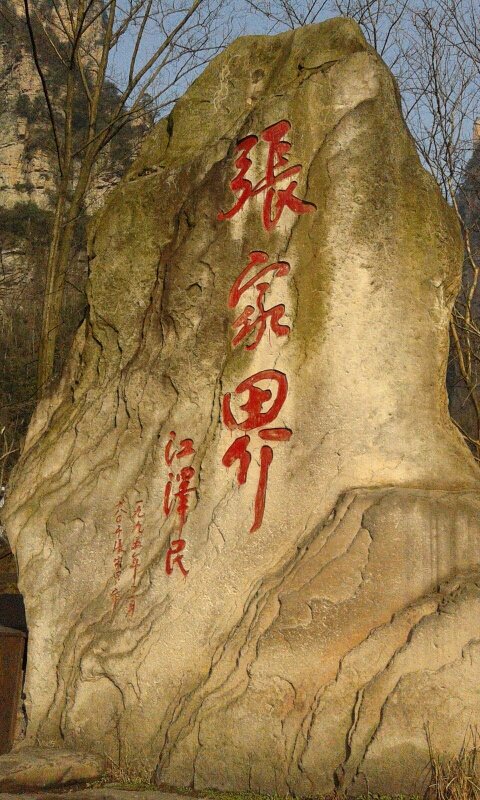 張家界
江澤民
一九九五年三月